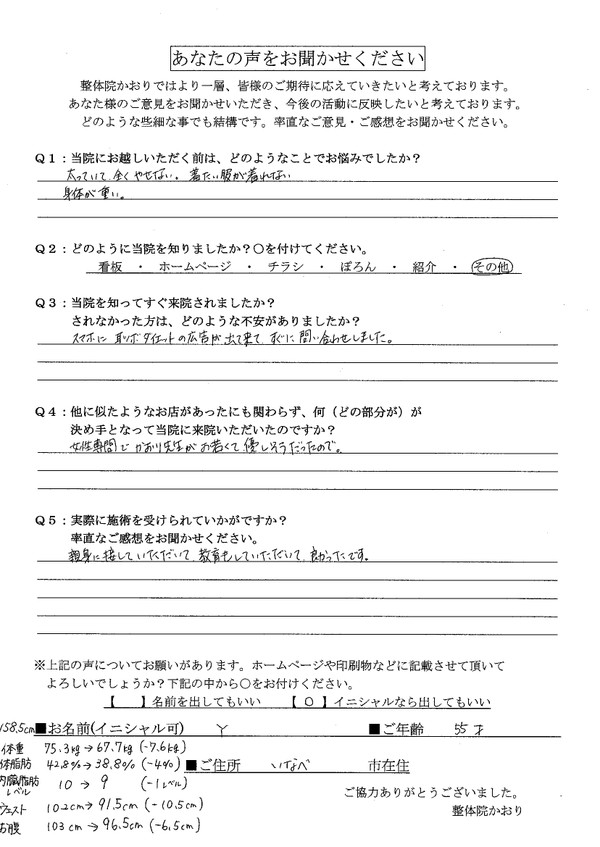 あなたの声をお聞かせください
整体院かおりではより一層、皆様のご期待に応えていきたいと考えております。
あなた様のご意見をお聞かせいただき、今後の活動に反映したいと考えております。
どのような些細な事でも結構です。率直なご意見・ご感想をお聞かせください。
Q1：当院にお越しいただく前は、どのようなことでお悩みでしたか？
太っていて、全くやせない。着たい服が着れない
身体が重い。
Q2：どのように当院を知りましたか？○を付けてください。
看板 ・ ホームページ ・ チラシ ・ ぽろん ・ 紹介 ・ その他
Q3：当院を知ってすぐ来院されましたか？
されなかった方は、どのような不安がありましたか？
スマホに耳ツボダイエットの広告が出て来て、すぐに問い合わせしました。
Q4：他に似たようなお店があったにも関わらず、何（どの部分が）が
決め手となって当院に来院いただいたのですか？
女性専門でかおり先生がお若くて優しそうだったので。
Q5：実際に施術を受けられていかがですか？
率直なご感想をお聞かせください。
親身に接していただいて、教育もしていただいて、良かったです。
※上記の声についてお願いがあります。ホームページや印刷物などに記載させて頂いて
よろしいでしょうか？下記の中から○をお付けください。
【　】名前を出してもいい 【 O 】イニシャルなら出してもいい
158.5cm ■お名前(イニシャル可) Y ■ご年齢 55才
体重 75.3kg→67.7kg (-7.6kg)
体脂肪 42.8%→38.8% (-4%) ■ご住所 いなべ 市在住
内臓脂肪レベル 10→9 (-1レベル)
ご協力ありがとうございました。
ウェスト 102cm→91.5cm (-10.5cm)
整体院かおり
お腹 103cm→96.5cm (-6.5cm)